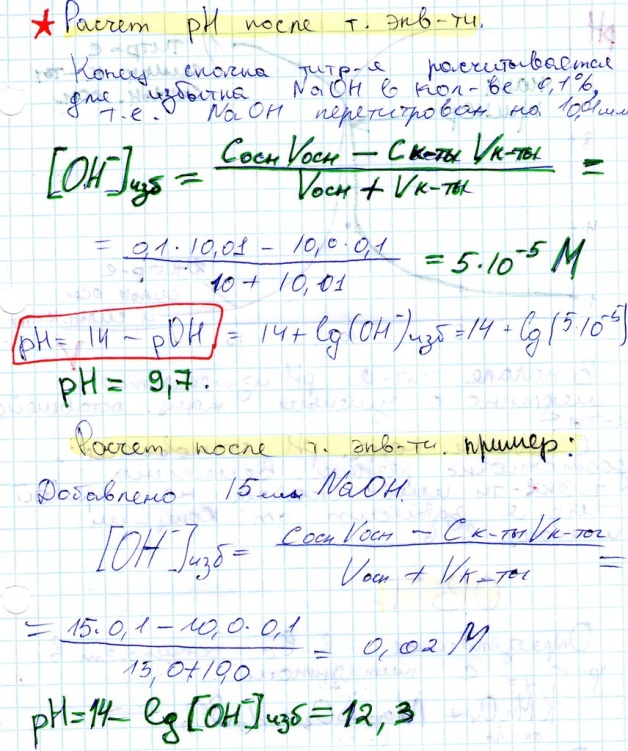 ★ Расчет pH после т. экв-ти.
Конец скачка титр-я расчитывается
для избытка NaOH в кол-ве 0,1%,
т.е. NaOH перетитрован на 10,01мл
[OH⁻]изб = (Cосн Vосн − Cк-ты Vк-ты) / (Vосн + Vк-ты) =
= (0,1·10,01 − 10,0·0,1) / (10 + 10,01) = 5·10⁻⁵ M
pH = 14 − pOH = 14 + lg(OH⁻)изб = 14 + lg(5·10⁻⁵)
pH = 9,7.
Расчет после т. экв-ти. пример:
Добавлено 15 мл NaOH.
[OH⁻]изб = (Cосн Vосн − Cк-ты Vк-ты) / (Vосн + Vк-ты) =
= (15·0,1 − 10,0·0,1) / (15,0+10,0) = 0,02 M
pH=14− lg[OH⁻]изб = 12,3